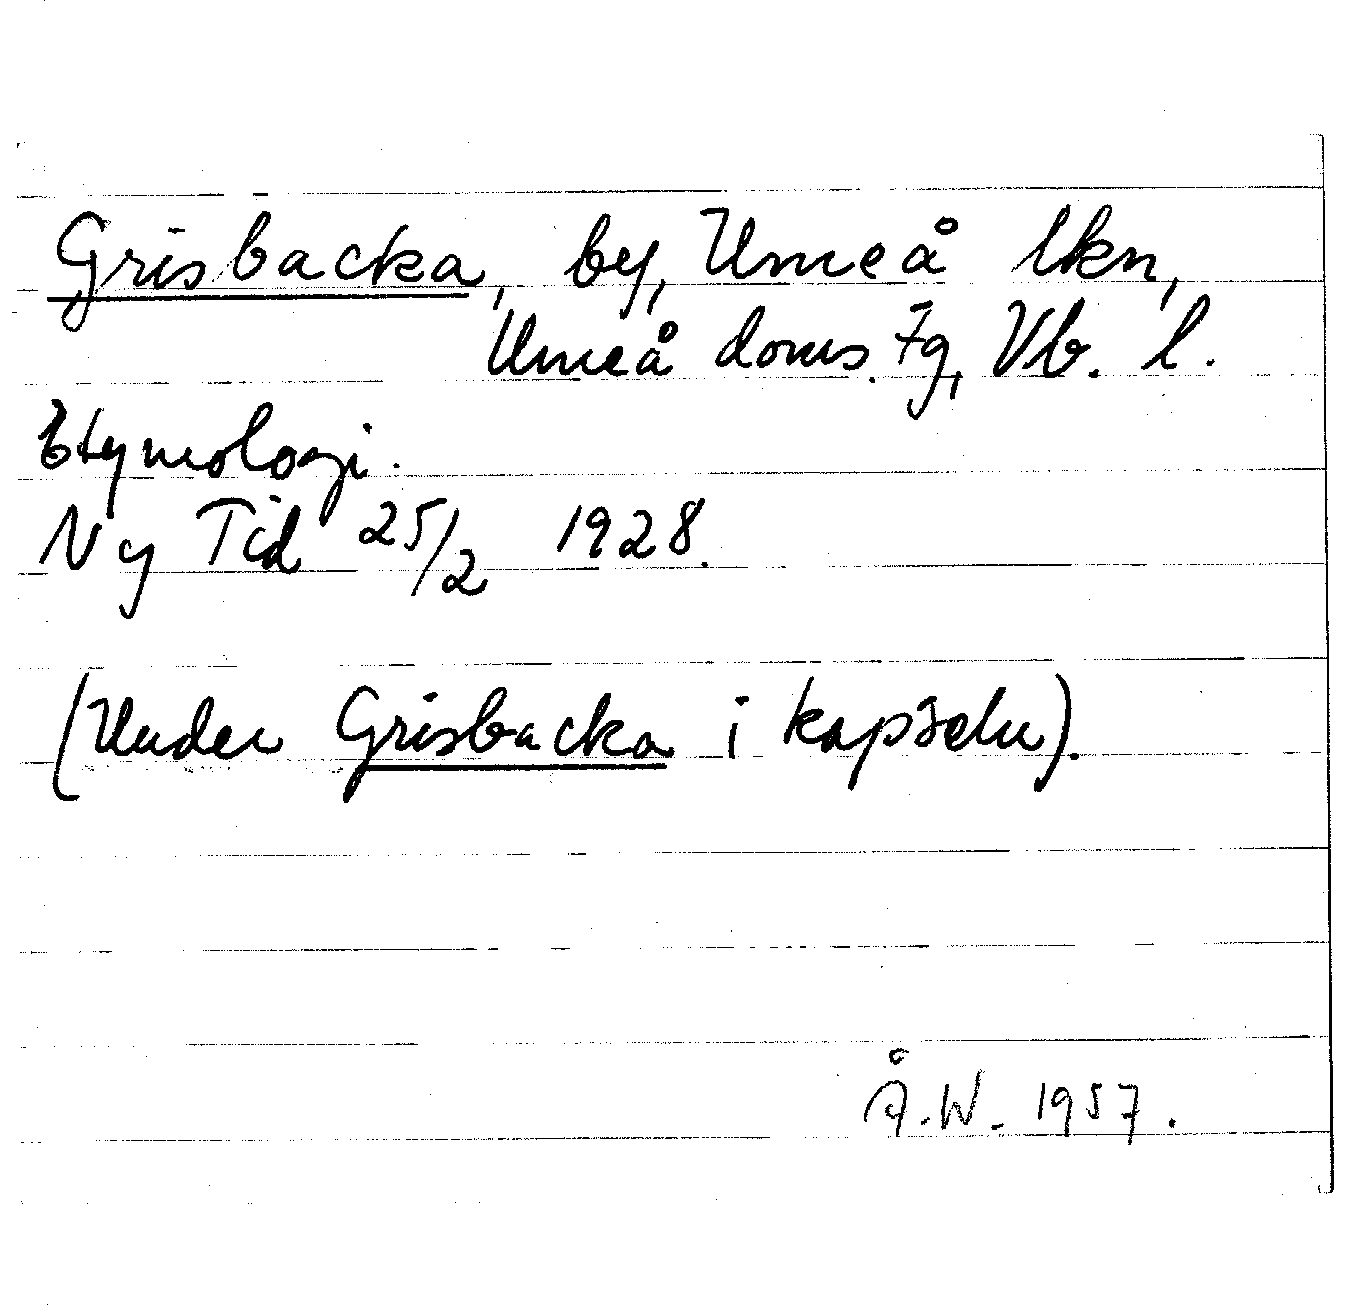 Grisbacka, by, Umeå lkn,
Umeå doms. Fg, Vb. l.
Etymologi.
Ny Tid 25/2 1928.
(Under Grisbacka i kapseln).
Å.W. 1957.